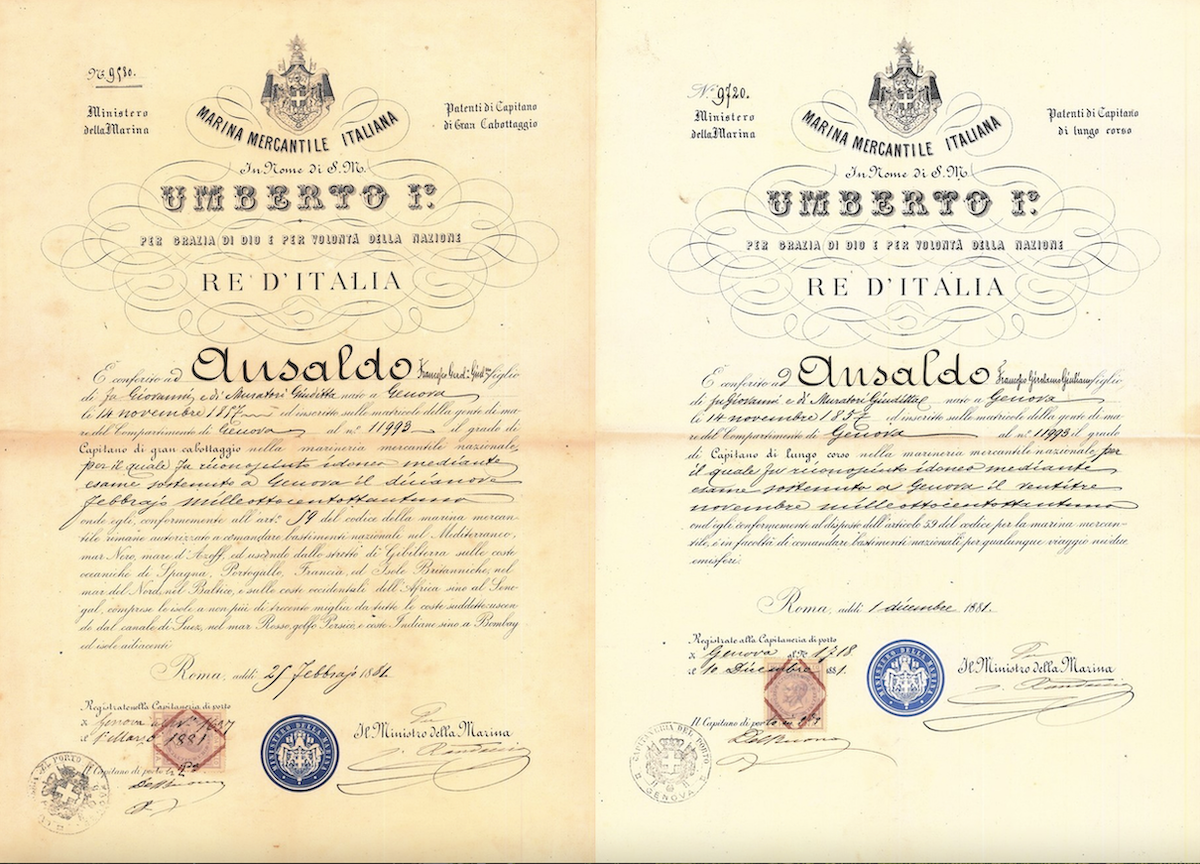 Nº 9580.
Ministero
della Marina
Patenti di Capitano
di Gran Cabottaggio
MARINA MERCANTILE ITALIANA
In Nome di S. M.
UMBERTO Iº.
PER GRAZIA DI DIO E PER VOLONTÀ DELLA NAZIONE
RE D'ITALIA
È conferito ad Ansaldo figlio
di fu Giovanni, e di Muratori Giuditta nato a Genova
li 14 novembre 1857 ed inscritto sulle matricole della gente di ma-
re del Compartimento di Genova al nº 11993 il grado di
Capitano di gran cabottaggio nella marineria mercantile nazionale,
per il quale fu riconosciuto idoneo mediante
esame sostenuto a Genova il diecianove
febbrajo milleottocentottantuno
onde egli, conformemente all'artº 59 del codice della marina mercan-
tile rimane autorizzato a comandare bastimenti nazionali nel Mediterraneo,
mar Nero, mare d'Azoff, ed uscendo dallo stretto di Gibilterra sulle coste
oceaniche di Spagna, Portogallo, Francia, ed Isole Britanniche, nel
mar del Nord, nel Baltico, e sulle coste occidentali dell'Africa sino al Sene-
gal, comprese le isole a non più di trecento miglia da tutte le coste suddette: uscen-
do dal canale di Suez, nel mar Rosso, golfo Persico, e coste Indiane sino a Bombay
ed isole adiacenti
Roma, addì 25 Febbrajo 1881.
Registrate nella Capitaneria di porto
di Genova al Nº
il 1º Marzo 1881
Il Capitano di porto
Il Ministro della Marina
MINISTERO DELLA MARINA
Nº 9720.
Ministero
della Marina
Patenti di Capitano
di lungo corso
MARINA MERCANTILE ITALIANA
In Nome di S. M.
UMBERTO Iº.
PER GRAZIA DI DIO E PER VOLONTÀ DELLA NAZIONE
RE D'ITALIA
È conferito ad Ansaldo Francesco Girolamo Giuliano figlio
di fu Giovanni e di Muratori Giuditta nato a Genova
li 14 novembre 1857 ed inscritto sulle matricole della gente di ma-
re del Compartimento di Genova al nº 11993 il grado
di Capitano di lungo corso nella marineria mercantile nazionale, per
il quale fu riconosciuto idoneo mediante
esame sostenuto a Genova il ventitre
novembre milleottocentottantuno
ond'egli, conformemente al disposto dell'articolo 59 del codice per la marina mercan-
tile, è in facoltà di comandare bastimenti nazionali per qualunque viaggio nei due
emisferi.
Roma, addì 1 dicembre 1881.
Registrate alla Capitaneria di porto
di Genova al Nº 1718
il 10 Dicembre 1881.
Il Capitano di porto
Il Ministro della Marina
MINISTERO DELLA MARINA
CAPITANERIA DEL PORTO
GENOVA